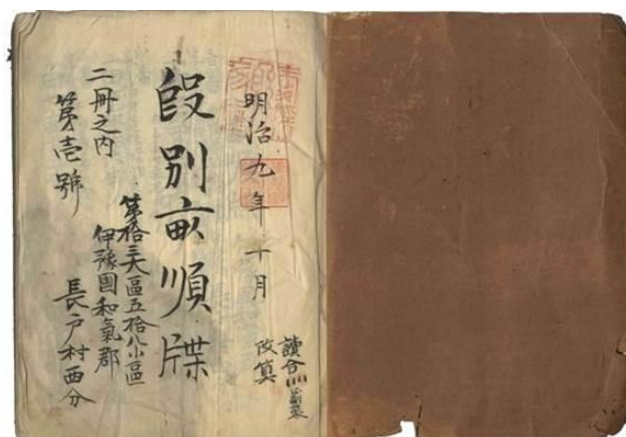 明治九年十月
讀合
改算
段別畝順牒
第拾三大區五拾八小區
伊豫國和氣郡
長戸村西分
二冊之内
第壱號